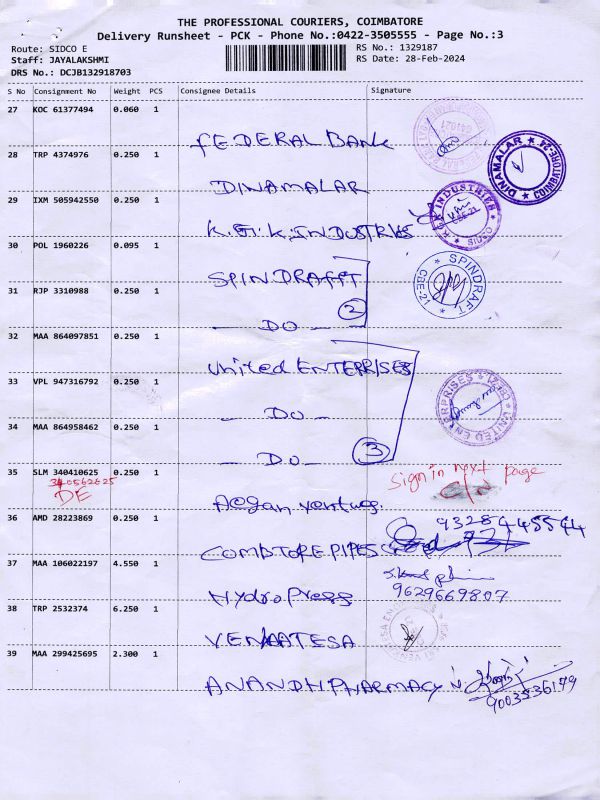 THE PROFESSIONAL COURIERS, COIMBATORE
Delivery Runsheet - PCK - Phone No.:0422-3505555 - Page No.:3
Route: SIDCO E
RS No.: 1329187
Staff: JAYALAKSHMI
RS Date: 28-Feb-2024
DRS No.: DCJB132918703
S No Consignment No Weight PCS Consignee Details Signature
27 KOC 61377494 0.060 1 FEDERAL BANK
28 TRP 4374976 0.250 1 DINAMALAR
DINAMALAR ★ COIMBATORE-24 ★
29 IXM 505942550 0.250 1 K.G.K. INDUSTRIES
K.G.K INDUSTRIES
30 POL 1960226 0.095 1 SPINDRAFFT
★ SPINDRAFT ★ CBE-21
31 RJP 3310988 0.250 1 — DO — 2
32 MAA 864097851 0.250 1 United ENTERPRISES
33 VPL 947316792 0.250 1 — DO —
UNITED ENTERPRISES
34 MAA 864958462 0.250 1 — DO — 3
35 SLM 340410625 0.250 1
Sign in next page
340562625
DE
C/N
36 AMD 28223869 0.250 1
9328445544
37 MAA 106022197 4.550 1 Hydro Press
9629669807
38 TRP 2532374 6.250 1 VENKATESA
39 MAA 299425695 2.300 1 ANANDH PHARMACY
9003536179